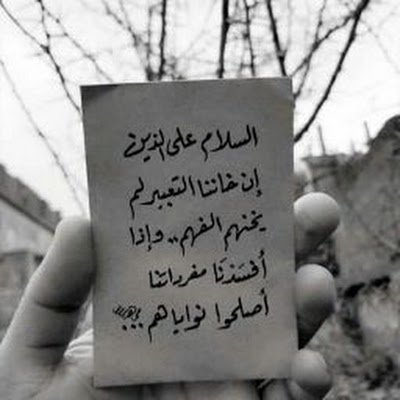 السلام على الذين
إن خاننا التعبير لم
يخنهم الفهم.. وإذا
أفسدَنا مفرداتنا
أصلحوا نواياهم !!..